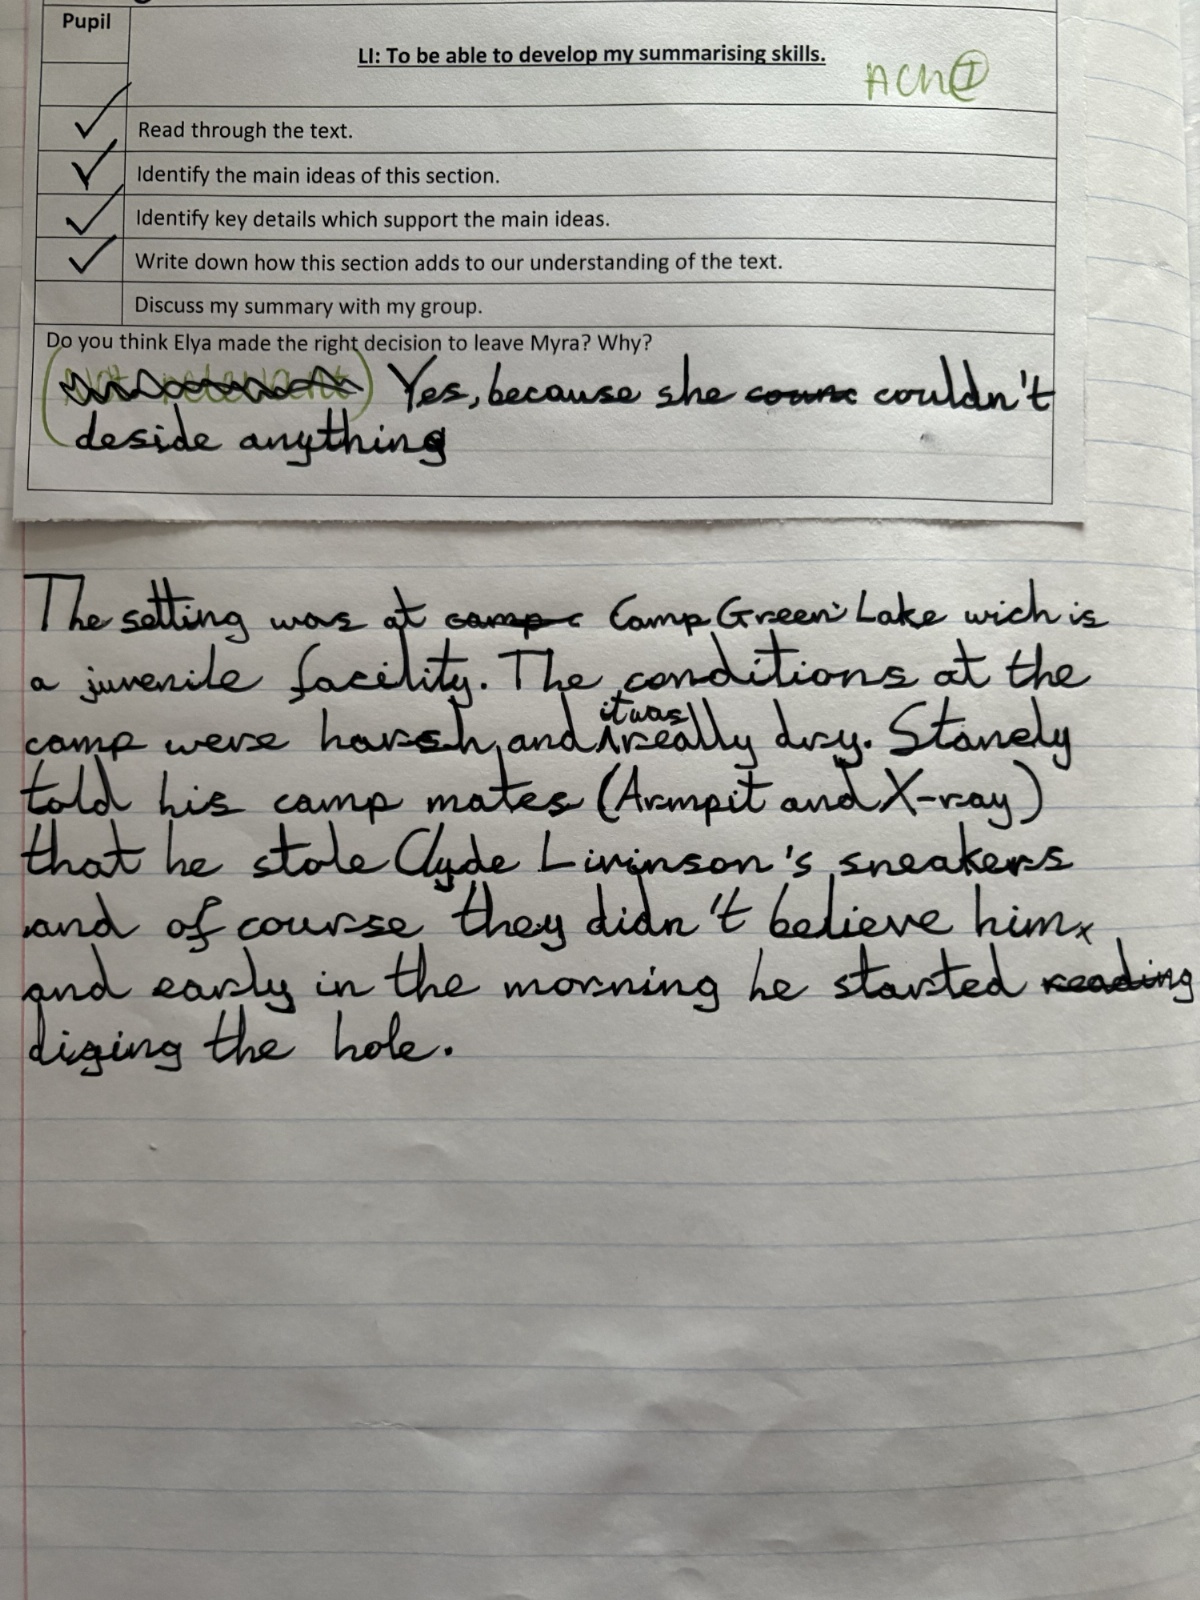 Pupil
LI: To be able to develop my summarising skills.
ACH I
Read through the text.
Identify the main ideas of this section.
Identify key details which support the main ideas.
Write down how this section adds to our understanding of the text.
Discuss my summary with my group.
Do you think Elya made the right decision to leave Myra? Why?
Yes, because she couldn't
deside anything
The setting was at camp Camp Green Lake wich is
a juvenile facility. The conditions at the
camp were harsh, and it was really dry. Stanely
told his camp mates (Armpit and X-ray)
that he stole Clyde Livinson's sneakers
and of course they didn't believe him
and early in the morning he started reading
diging the hole.